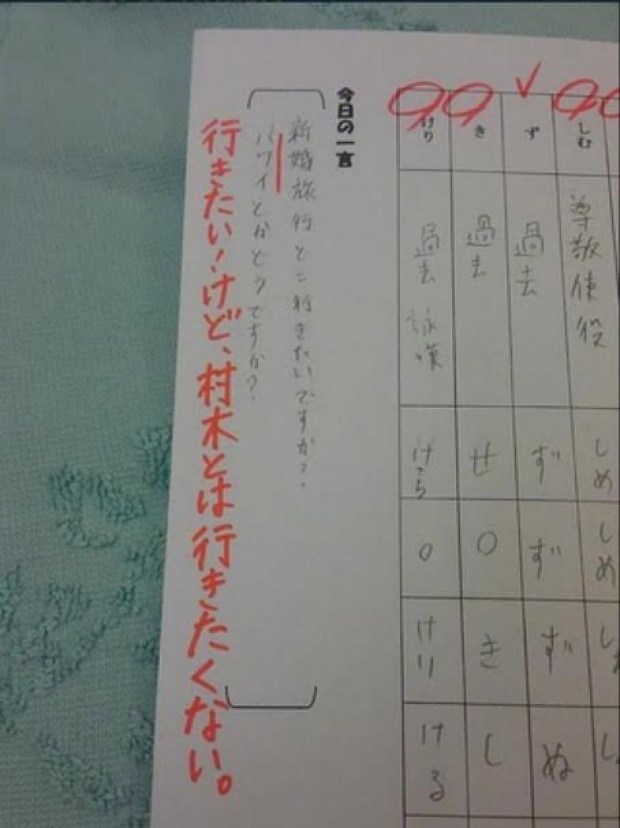 しむ
尊敬使役
しめ
しめ
ず
過去
ず
ず
ず
ぬ
き
過去
せ
○
き
し
けり
過去 詠嘆
けら
○
けり
ける
今日の一言
新婚旅行どこ行きたいですか?
ハワイとかどうですか?
行きたい!けど、村木とは行きたくない。